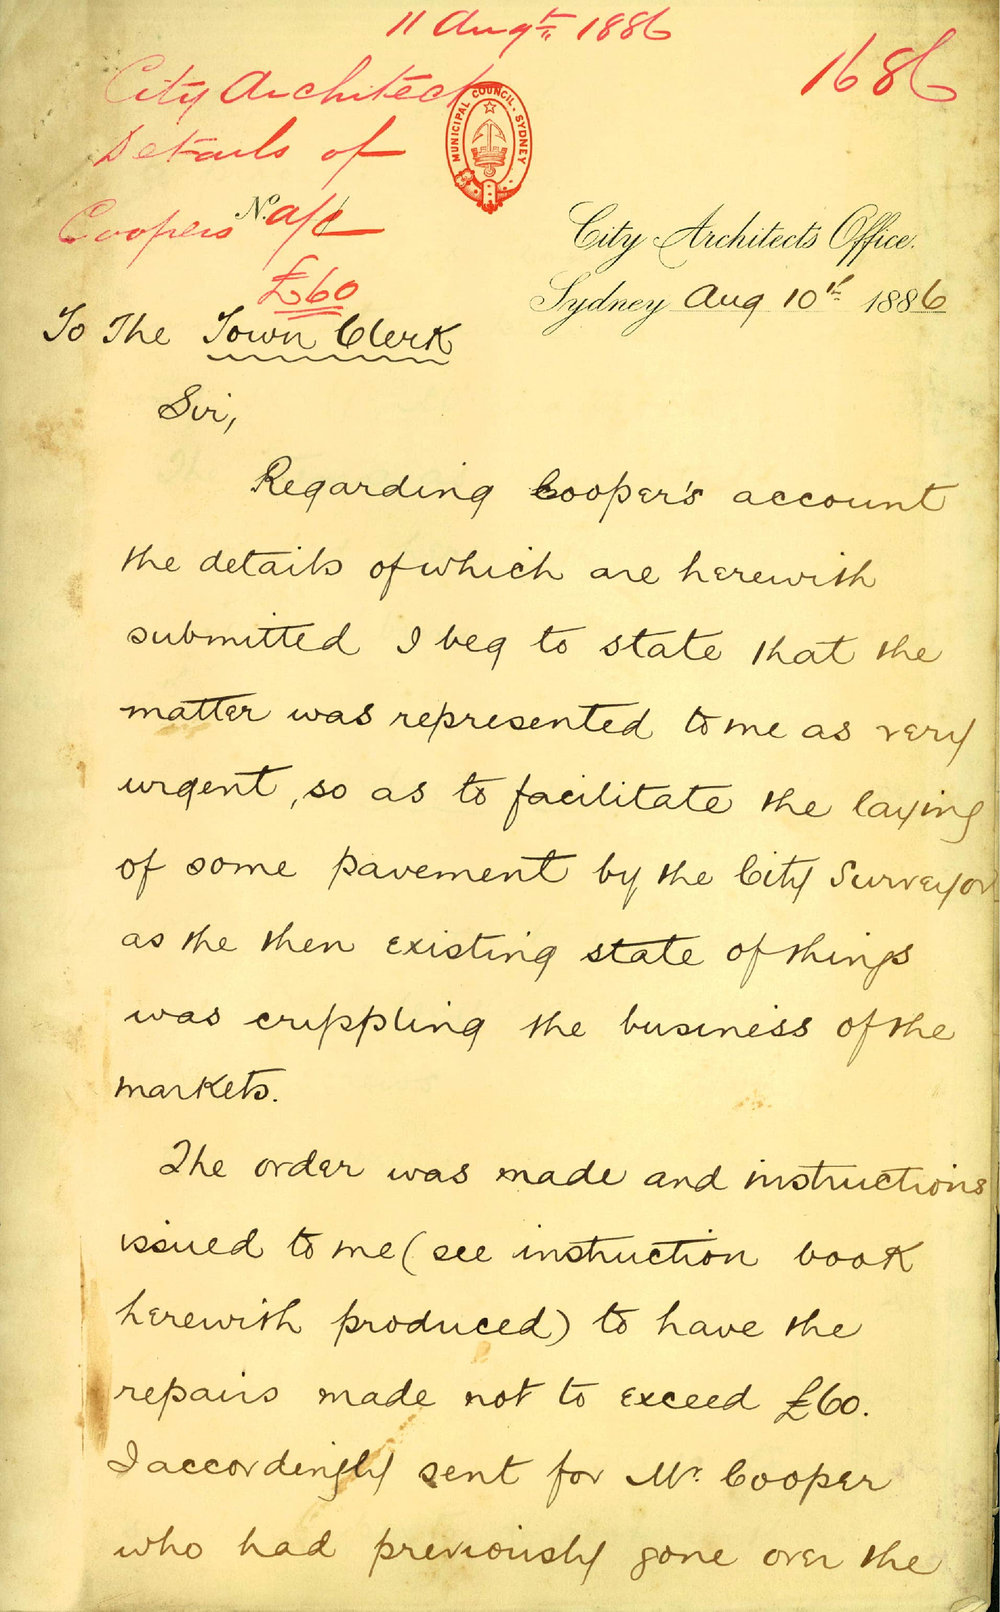 11 Augt. 1886
1686
City Architect
Details of
Coopers a/c
£60
MUNICIPAL COUNCIL. SYDNEY
No.
City Architects Office.
Sydney Aug 10th 1886
To The Town Clerk
Sir,
Regarding Cooper's account
the details of which are herewith
submitted I beg to state that the
matter was represented to me as very
urgent, so as to facilitate the laying
of some pavement by the City Surveyor
as the then existing state of things
was crippling the business of the
markets.
The order was made and instructions
issued to me (see instruction book
herewith produced) to have the
repairs made not to exceed £60.
I accordingly sent for Mr. Cooper
who had previously gone over the